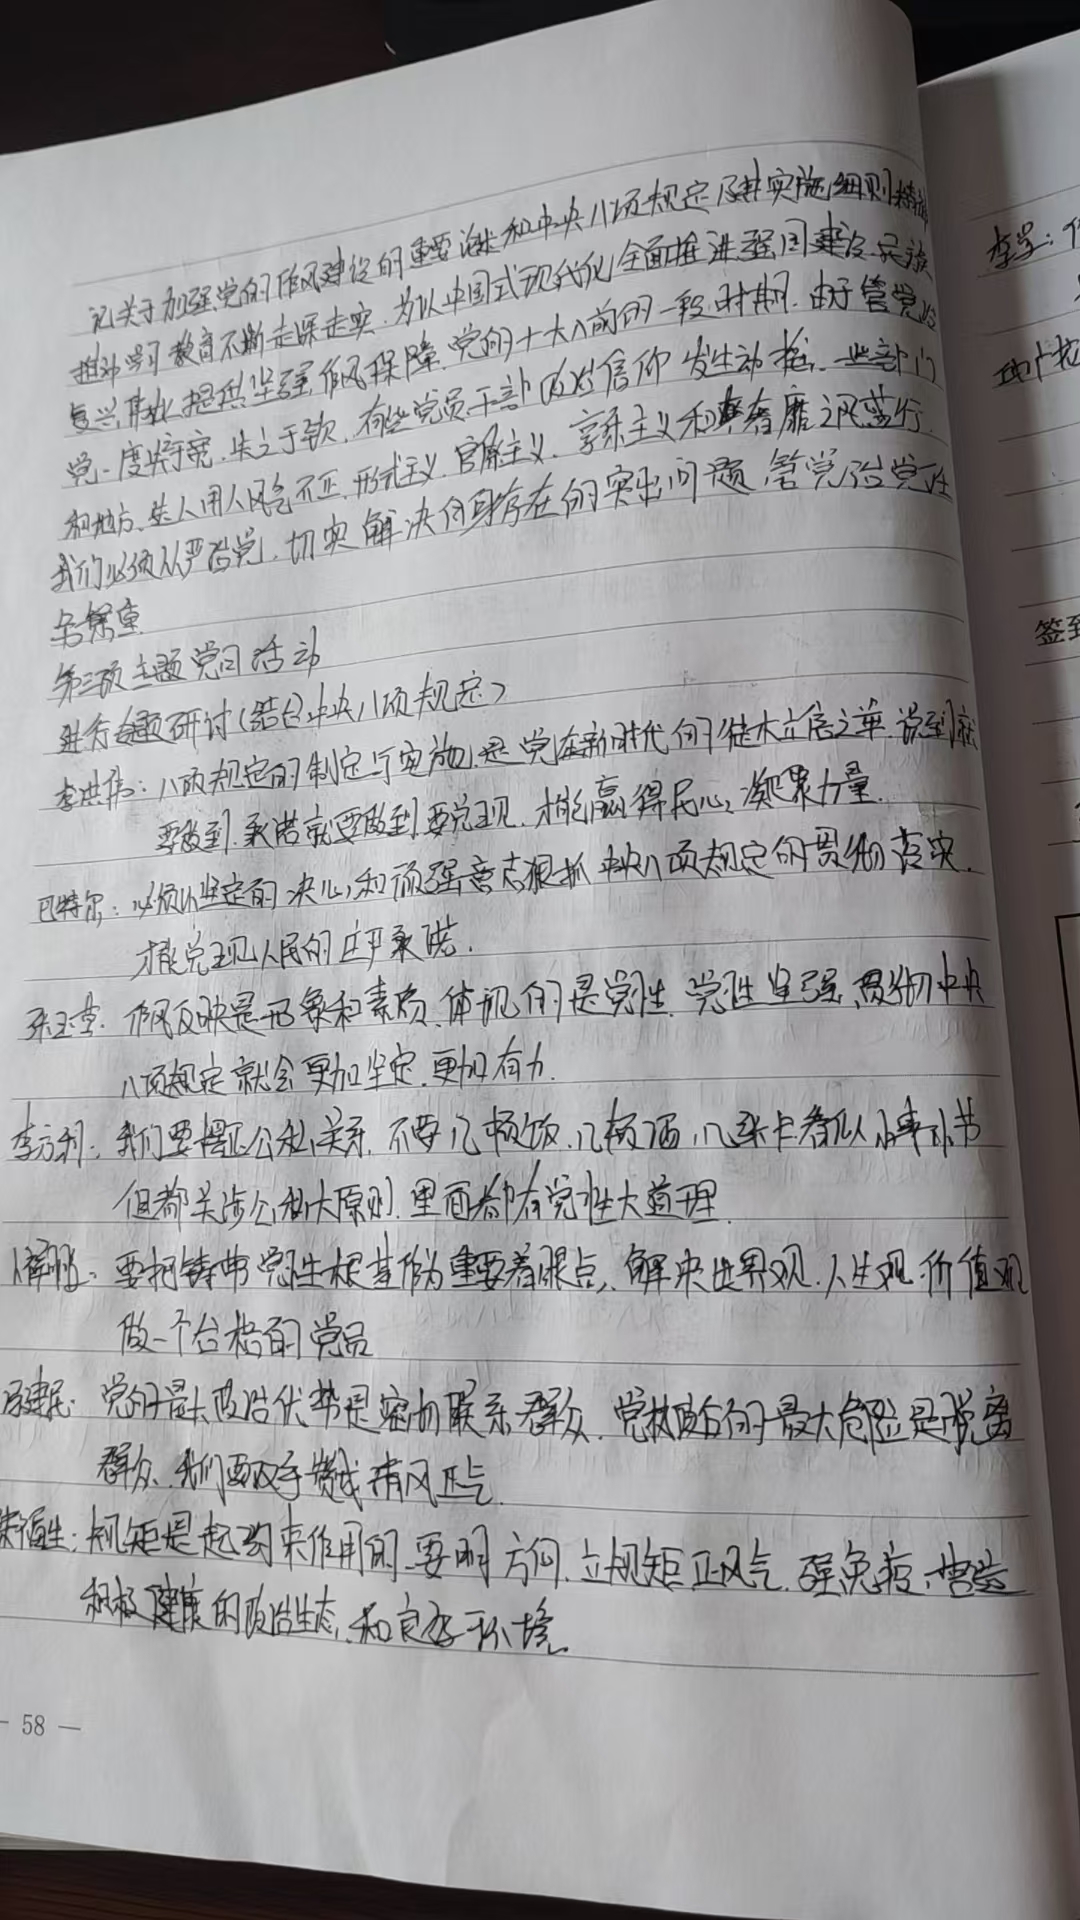 记关于加强党的作风建设的重要论述和中央八项规定及其实施细则精神
推动学习教育不断走深走实,为以中国式现代化全面推进强国建设民族
复兴伟业提供坚强作风保障.党的十八大前的一段时期.由于管党治
党一度宽,失之于软,有些党员干部政治信仰发生动摇、一些部门
和地方、选人用人风气不正、形式主义、官僚主义、享乐主义和奢靡之风盛行.
我们必须从严治党,切实解决自身存在的突出问题,管党治党任
务繁重.
第三项主题党日活动
进行专题研讨(结合中央八项规定)
李洪伟:八项规定的制定与实施,是党在新时代的徒木立信之举.说到就
要做到.承诺就要做到要兑现.才能赢得民心,凝聚力量.
巴特尔:必须以坚定的决心和顽强意志狠抓中央八项规定的贯彻落实.
才能兑现人民的庄严承诺.
张玉 作风反映是形象和素质、体现的是党性.党性坚强、贯彻中央
八项规定就会更加坚定.更加有力.
李方利:我们要摆正公私关系.不要几顿饭、几杯酒、几张卡看似小事小节
但都关涉公私大原则.里面都有党性大道理.
要把铸牢党性根基作为重要着眼点,解决世界观.人生观.价值观
做一个合格的党员
建民:党的最大政治优势是密切联系群众.党执政后的最大危险是脱离
群众、我们要清风正气.
福生:规矩是起约束作用的.要明方向.立规矩正风气.强免疫、营造
积极健康的政治生态,和良好环境.
— 58 —
李学:
地广
签到